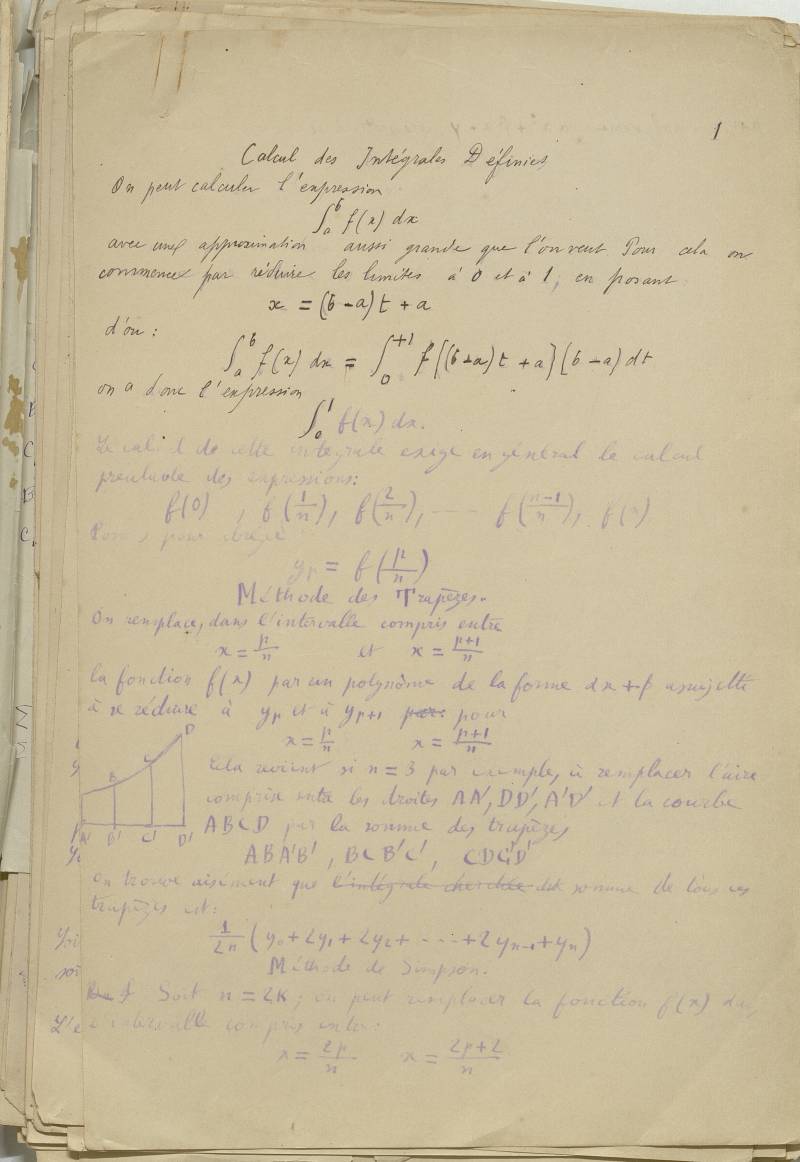 1
Calcul des Intégrales Définies
On peut calculer l'expression
∫_a^b f(x) dx
avec une approximation aussi grande que l'on veut. Pour cela on
commence par réduire les limites à 0 et à 1, en posant
x = (b-a)t + a
d'où :
∫_a^b f(x) dx = ∫_0^{+1} f[(b-a)t + a](b-a) dt
on a donc l'expression
∫_0^1 f(x) dx.
Le calcul de cette intégrale exige en général le calcul
préalable des expressions:
f(0), f(1/n), f(2/n), ---- f(n-1/n), f(n)
Posons pour abréger
y_p = f(p/n)
Méthode des Trapèzes.
On remplace, dans l'intervalle compris entre
x = p/n et x = p+1/n
la fonction f(x) par un polynôme de la forme αx + β assujetti
à se réduire à y_p et à y_{p+1} par pour
x = p/n x = p+1/n
D
C
B
A' B' C' D'
Cela revient si n = 3 par exemple, à remplacer l'aire
comprise entre les droites AA', DD', A'D' et la courbe
ABCD par la somme des trapèzes
ABA'B', BCB'C', CDC'D'
On trouve aisément que l'intégrale cherchée est somme de tous ces
trapèzes est:
1/2n (y_0 + 2y_1 + 2y_2 + ---- + 2y_{n-1} + y_n)
Méthode de Simpson.
Soit n = 2K; on peut remplacer la fonction f(x) dans
l'intervalle compris entre:
x = 2p/n x = 2p+2/n